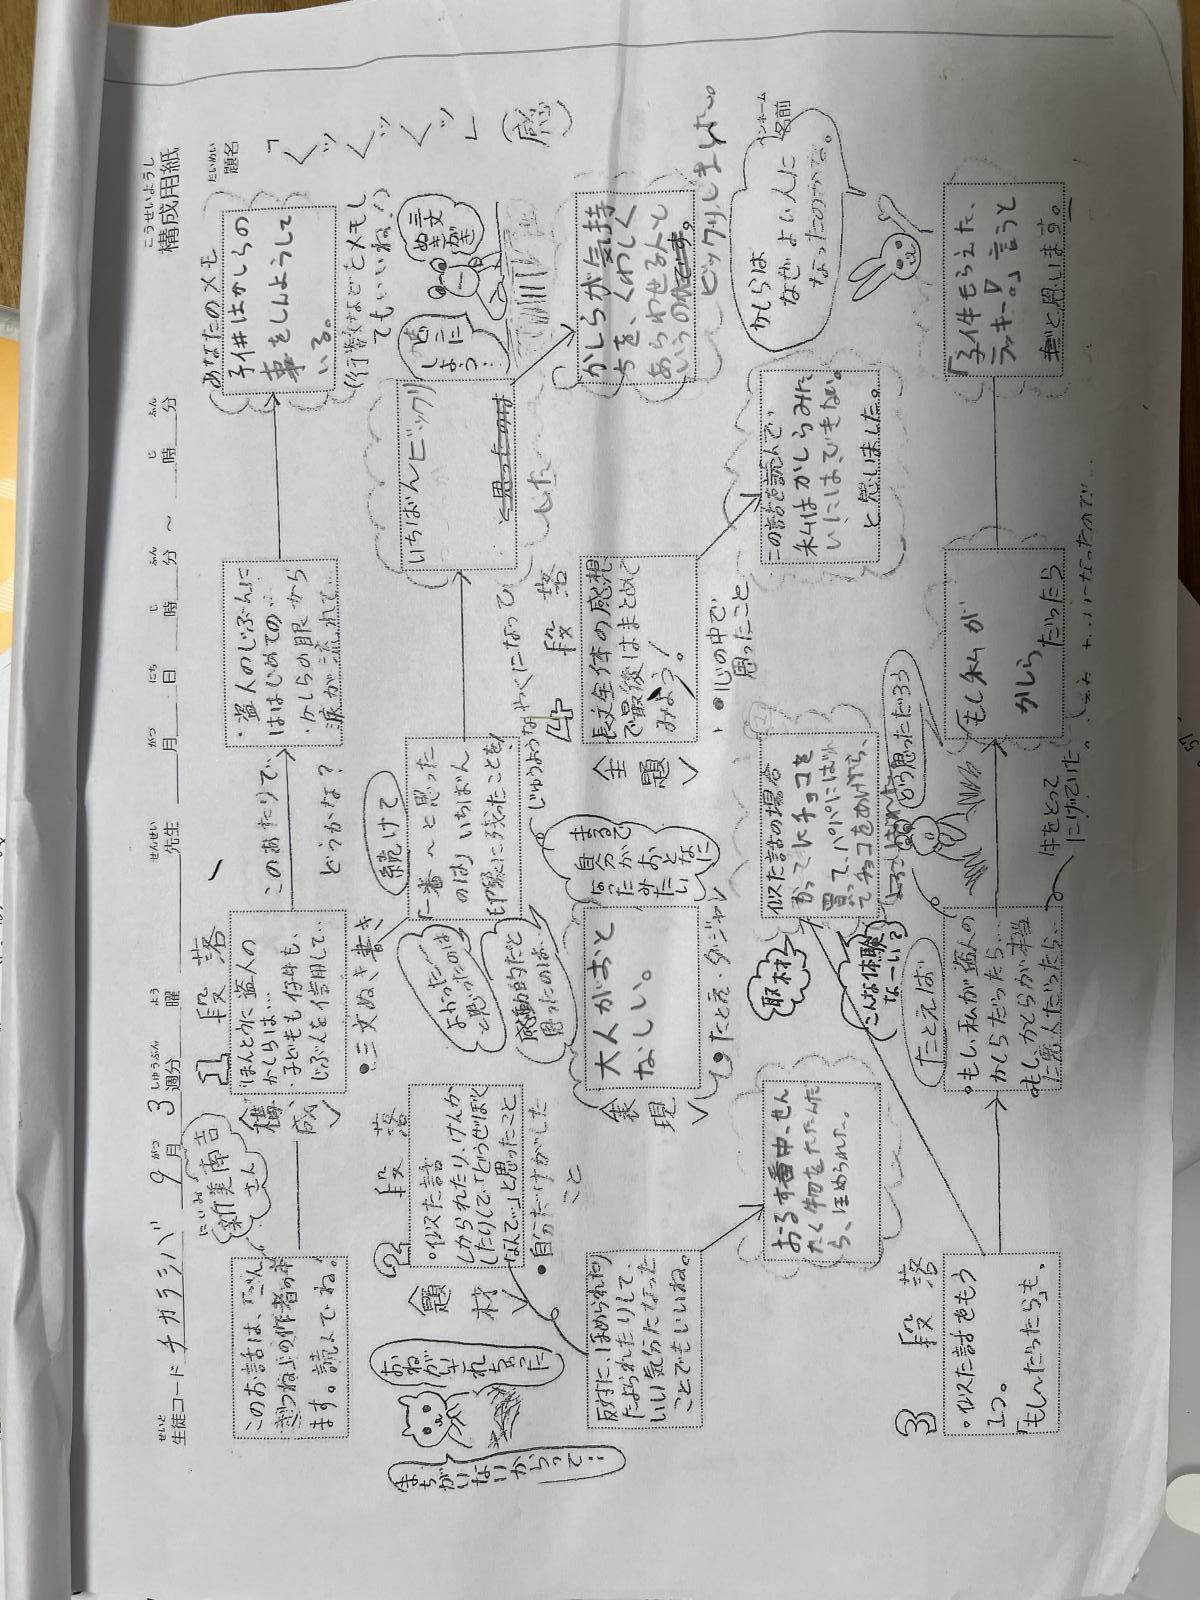 こうせいようし
構成用紙
せいと
生徒コード チカラシバ 9月 3週分 曜 先生 月 日 時 分 ~ 時 分
がつ しゅうぶん よう せんせい がつ にち じ ふん じ ふん
だいめい
題名
「くッくッくッ」
感
ンネーム
名前
このお話は、「ごん
ぎつね」の作者の本
ます。読んでね。
にいみ
新美南吉
さん
1段落
構成
・ほんとうに盗人の
かしらは…
・子どもも仔牛も、
じぶんを信用して…
このあたりで、
どうかな?
・盗人のじぶんに
ははじめての…
・かしらの眼から
涙が流れて…
あなたのメモ
子供はかしらの
事をしんようして
いる。
(行数などをメモし
てもいいね!)
2段落
題材
・似た話
しかられたり、けんか
したりして、「どうせぼくと
なんて…」と思ったこと
・自分だけがした
こと
おねが
まちがい
ないから
って…
反対に、ほめられたり
たよられたりして、
いい気分になった
ことでもいいね。
おるす番中、せん
たく物をたたんだ
ら、ほめられた。
・三文ぬき書き
続けて
「一番~と思った
のは」いちばん
印象に残ったことを、
よかった
と思ったのは
感動的だと
思ったのは…
いちばんビックリ
と思ったのは
した
どこに
しよう!
三文
ぬき
がき
かしらが気持
ちを、くわしく
あらわせる人と
いうのです。
ビックリしました。
表現
大人がおと
なしい。
・たとえ・ダジャレ
まるで
自分が
おとなに
なった
みたい
じゅうような やくになって
4段落
全題
長文全体の感想
で最後はまとめて
みよう!
・心の中で
思ったこと
この話を読んで
私はかしらみた
いにはできない。
と思いました。
かしらは
なぜよい人に
なったのかな。
取材
似た話の場合
かってにチョコを
買って、パパにばれ
てチョコをあげたら、
こんな体験
なーい?
3段落
・似た話をもう
1つ。
「もし~だったら」も、
たとえば
・もし、私が盗人の
かしらだったら…
・もし、かしらが本当
に悪人だったら、
牛をとって
にげていた。
どう思っただろう
もし私が
かしら
だったら
「子牛もらえた、
ラッキー。」言うと
と思います。